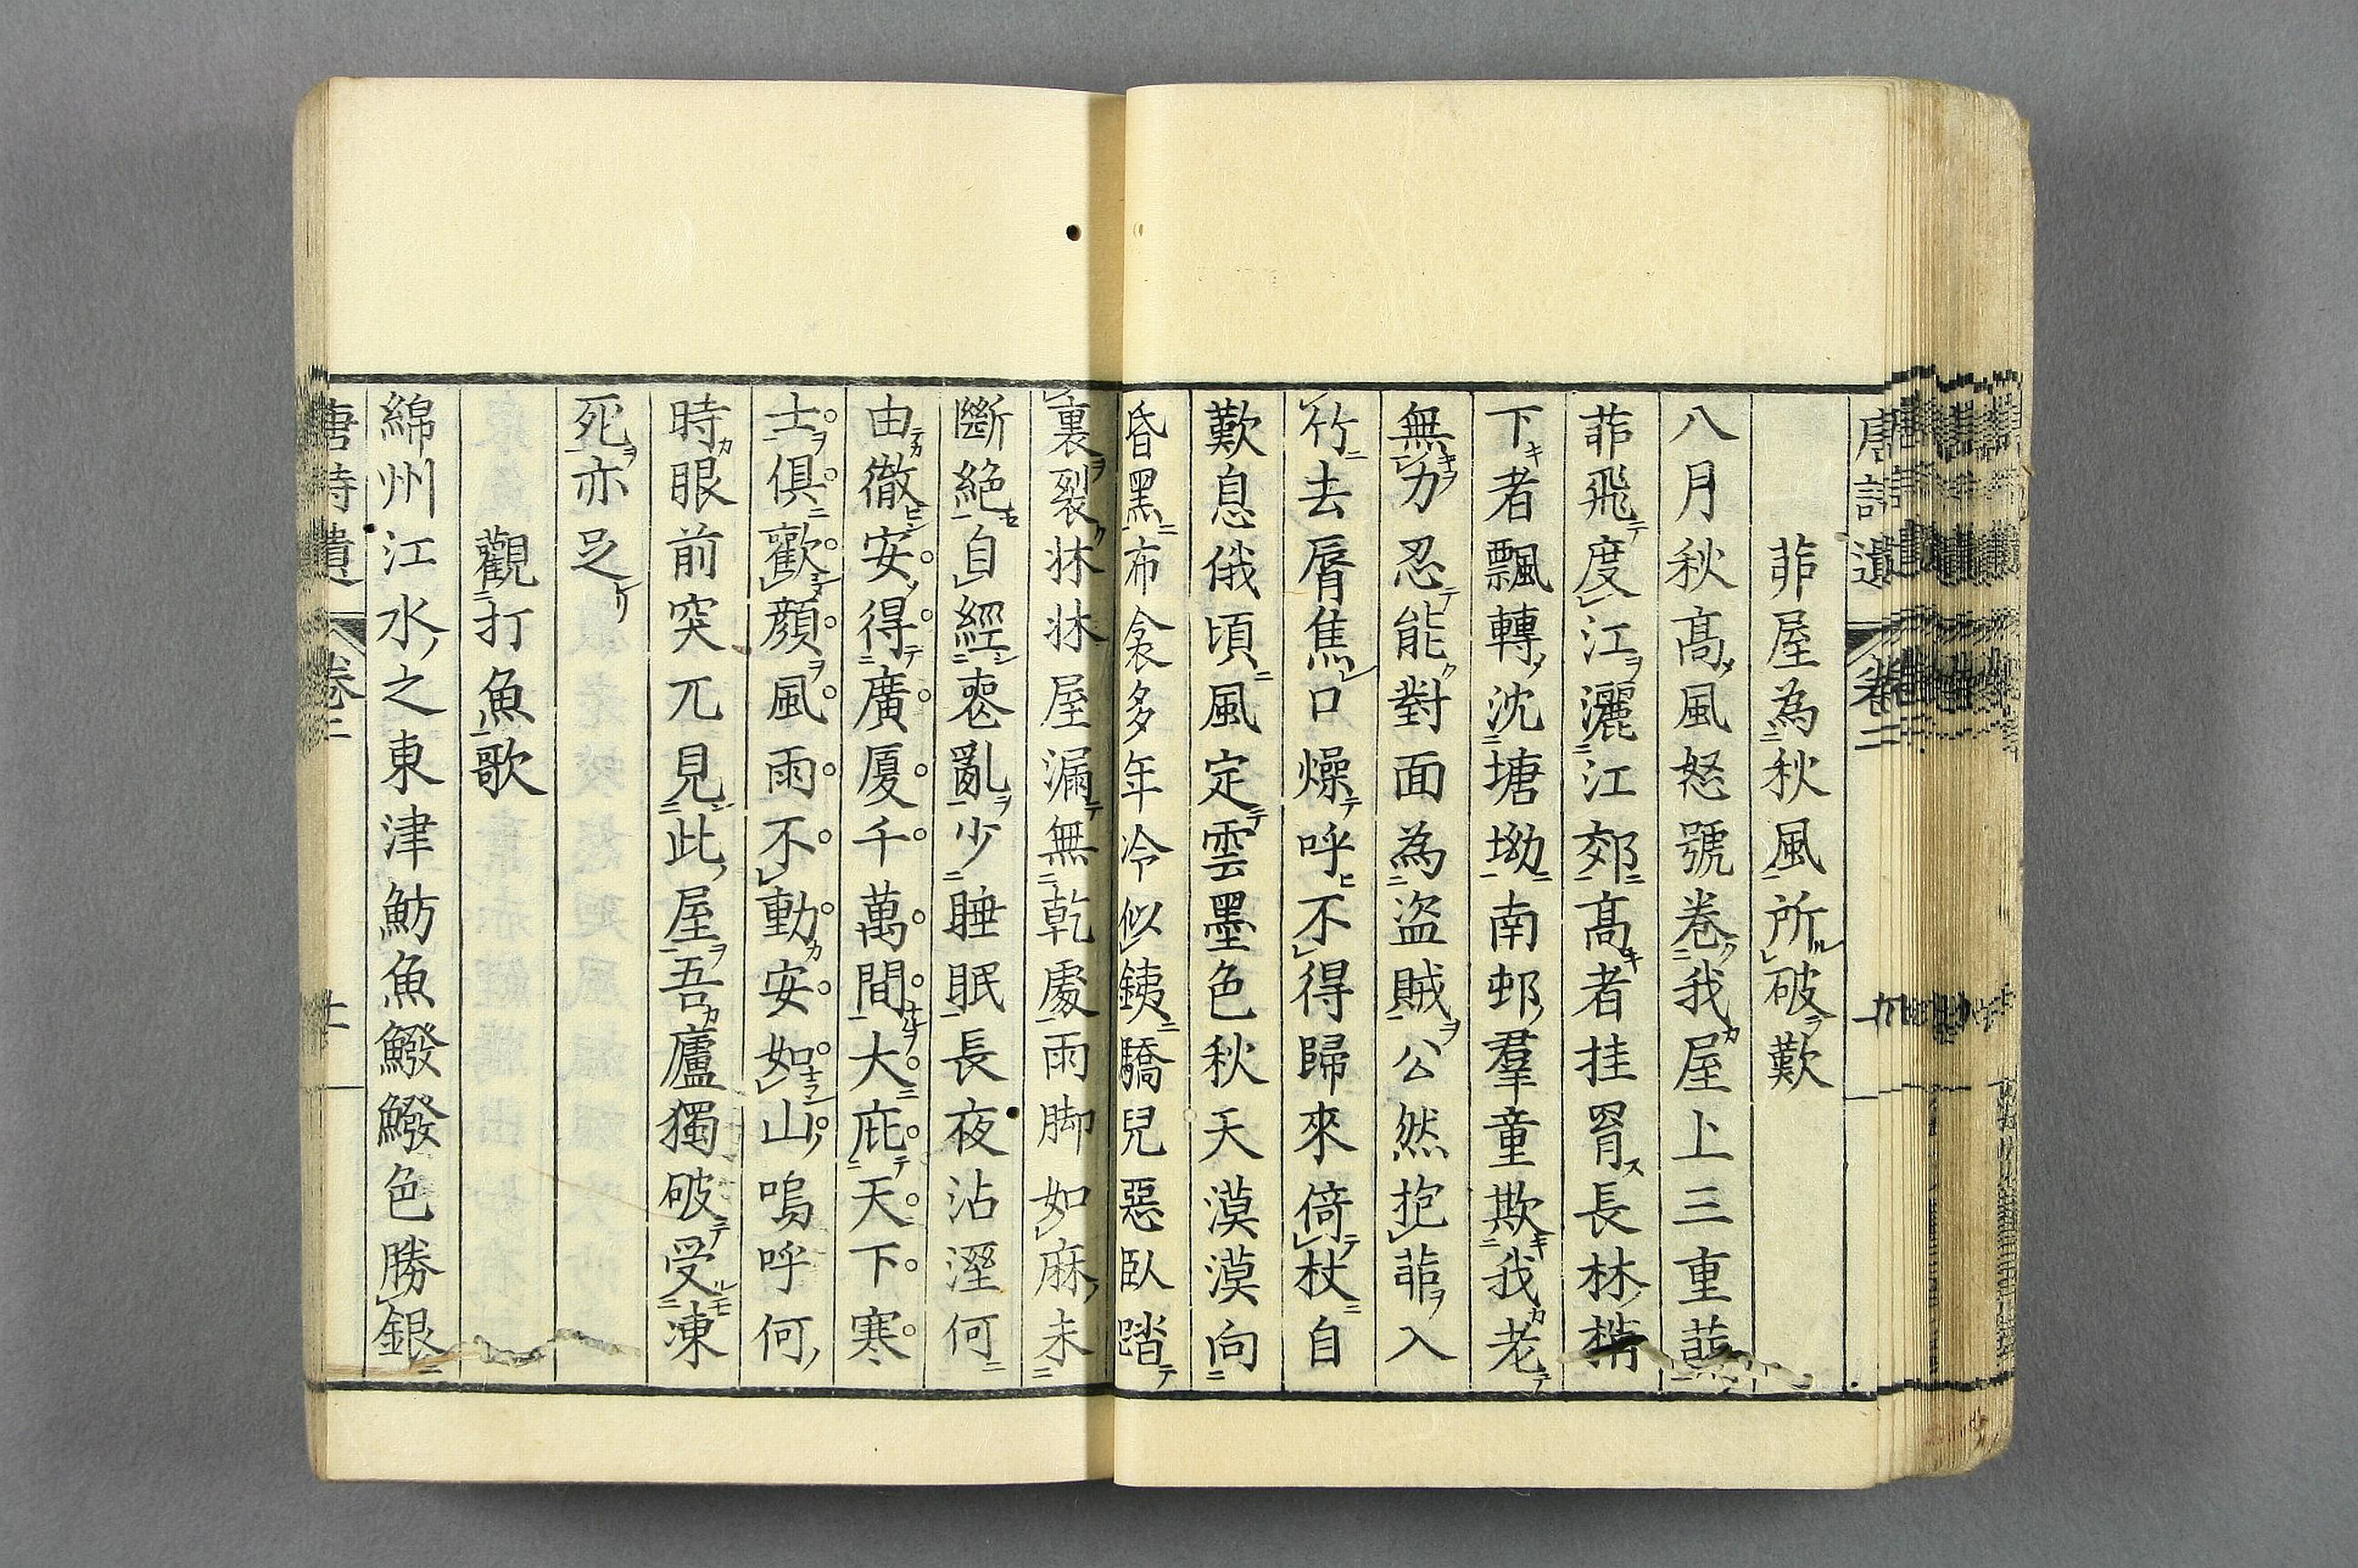 唐詩遺 卷二
茆屋為秋風所破歎
八月秋髙風怒號卷我屋上三重茆
茆飛度江灑江郊髙者挂罥長林梢
下者飄轉沈塘坳南邨羣童欺我老
無力忍能對面為盗賊公然抱茆入
竹去脣焦口燥呼不得歸來倚杖自
歎息俄頃風定雲墨色秋天漠漠向
昏黑布衾多年冷似銕驕兒惡臥踏
裏裂牀牀屋漏無乾處雨脚如麻未
斷絕自經喪亂少睡眠長夜沾溼何
由徹安得廣厦千萬間大庇天下寒
士俱歡顔風雨不動安如山嗚呼何
時眼前突兀見此屋吾廬獨破受凍
死亦足
觀打魚歌
綿州江水之東津魴魚鱍鱍色勝銀
唐詩遺 卷二